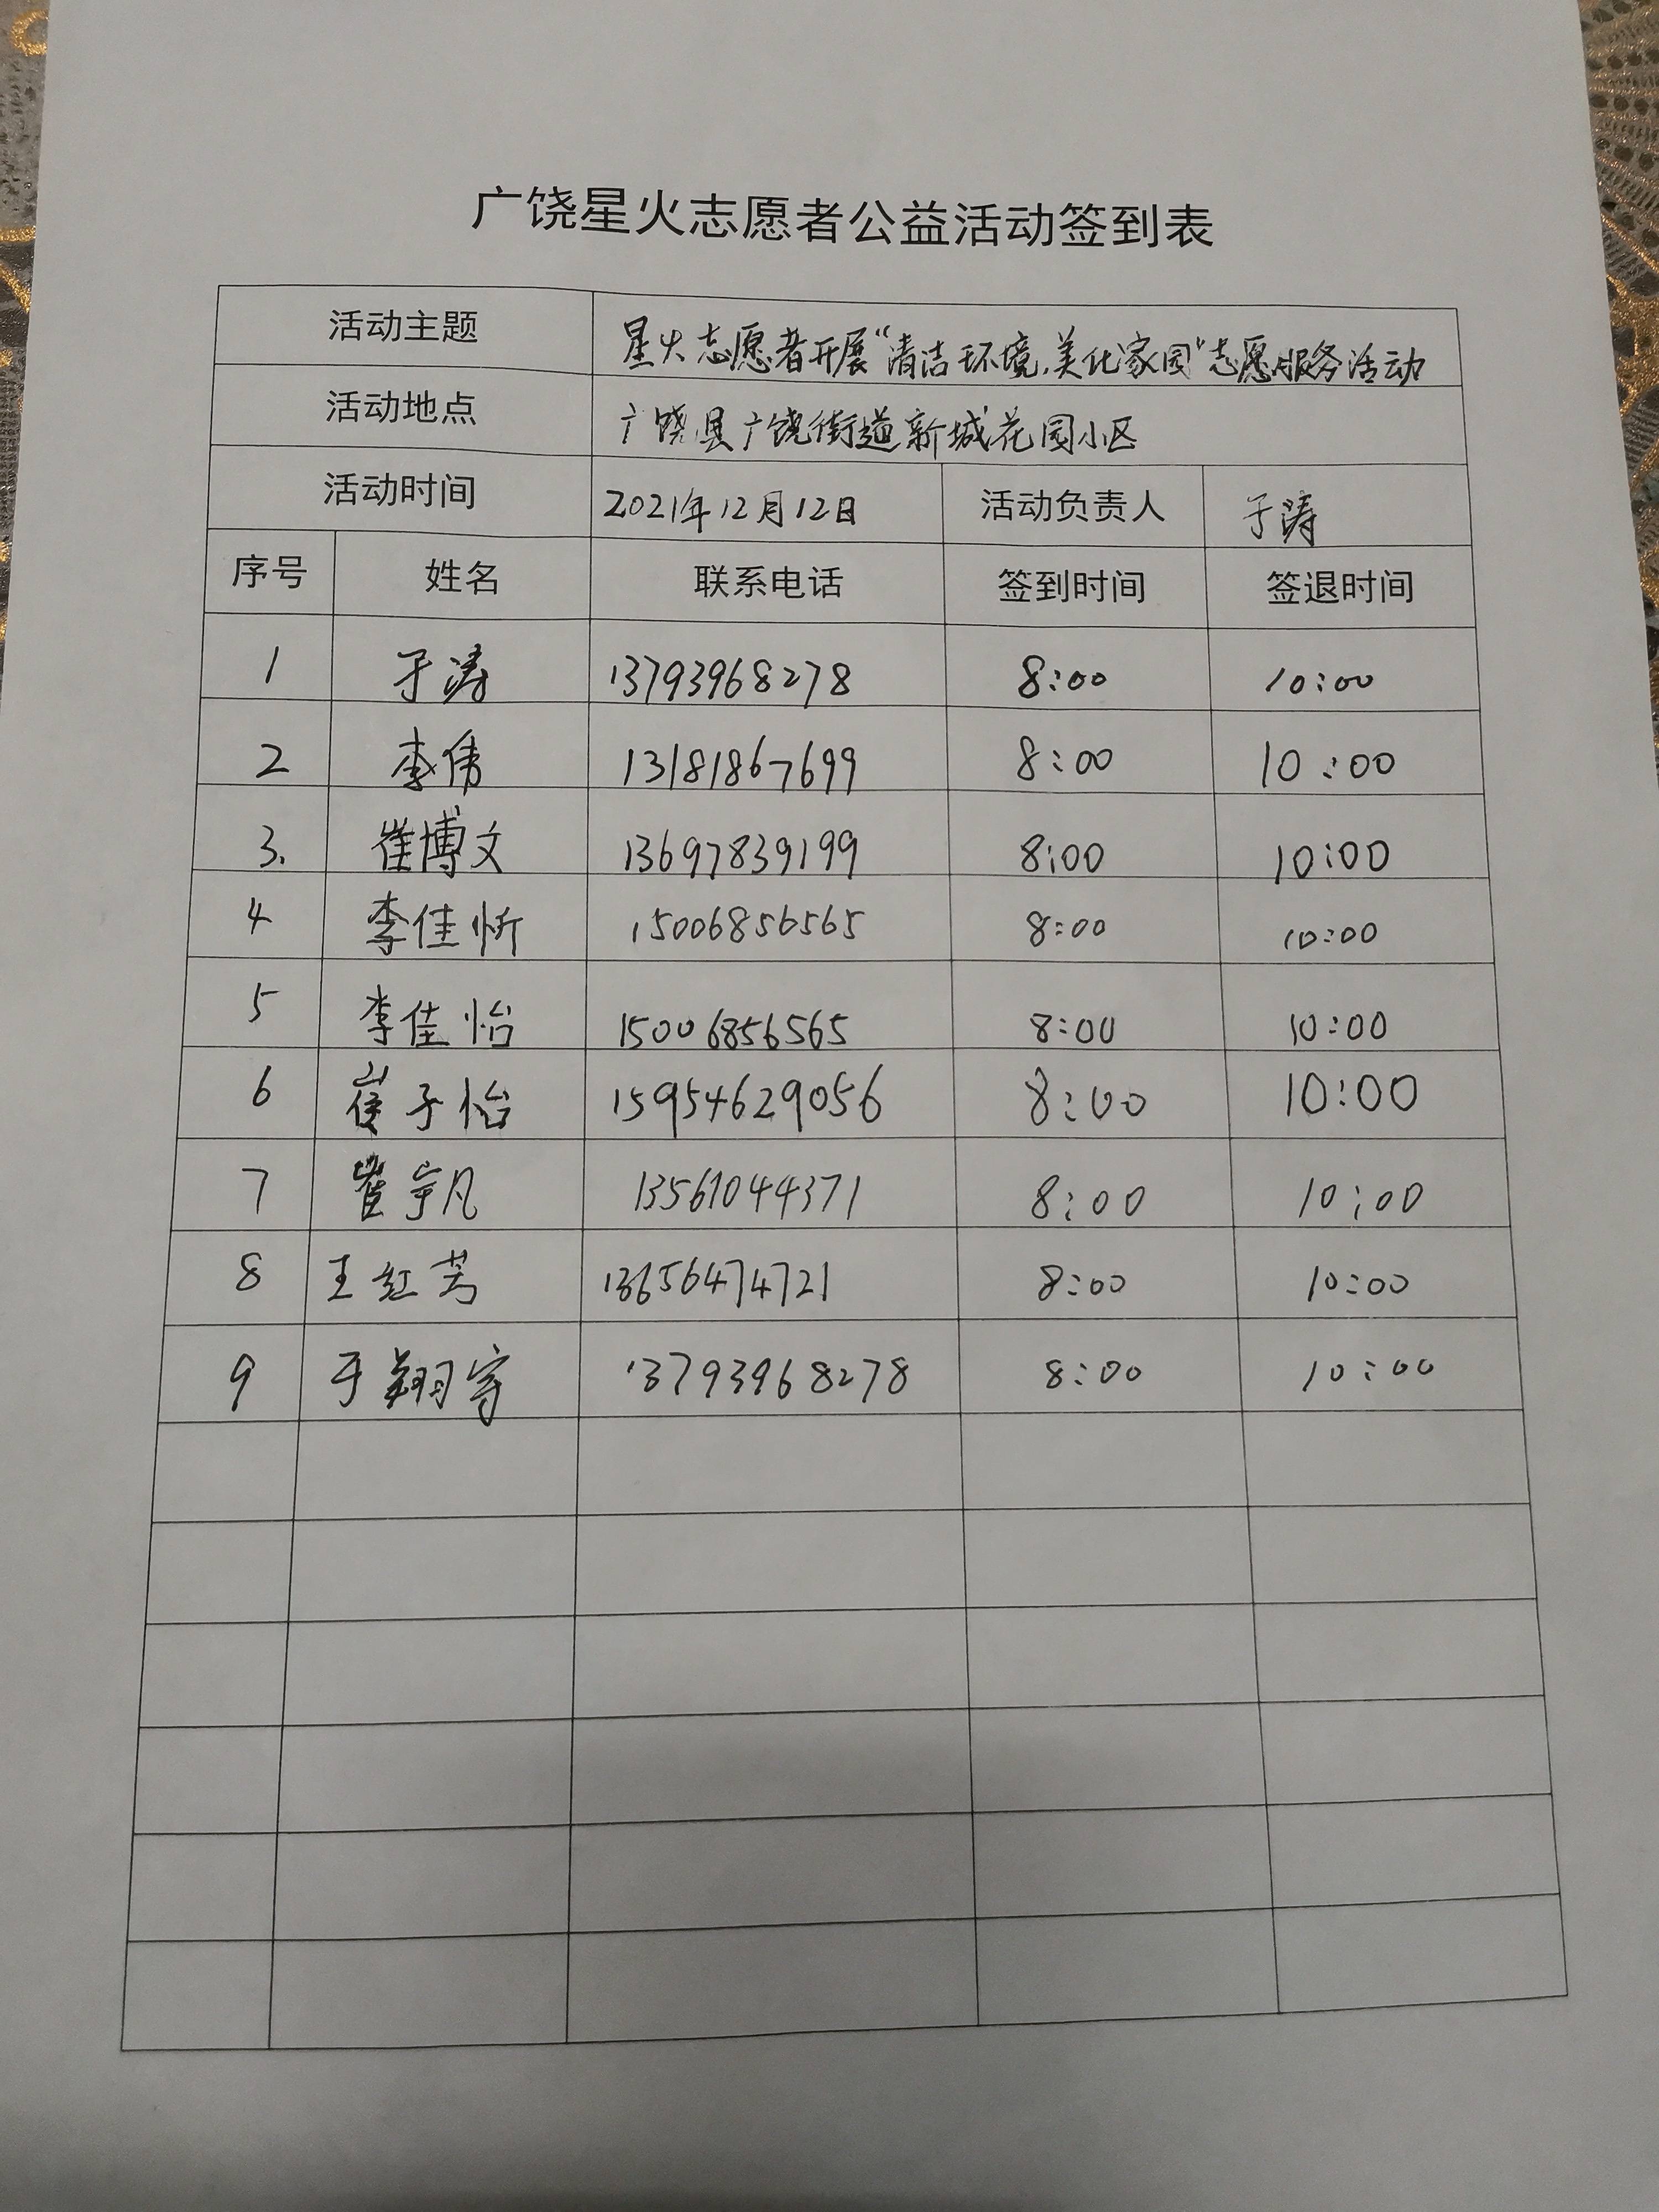 广饶星火志愿者公益活动签到表
活动主题 星火志愿者开展“清洁环境,美化家园”志愿服务活动
活动地点 广饶县广饶街道新城花园小区
活动时间 2021年12月12日 活动负责人 于涛
序号 姓名 联系电话 签到时间 签退时间
1 于涛 13793968278 8:00 10:00
2 李伟 13181867699 8:00 10:00
3. 崔博文 13697839199 8:00 10:00
4 李佳忻 15006856565 8:00 10:00
5 李佳怡 15006856565 8:00 10:00
6 崔子怡 15954629056 8:00 10:00
7 崔宇凡 13561044371 8:00 10:00
8 王红芳 13656474721 8:00 10:00
9 于翔宇 13793968278 8:00 10:00